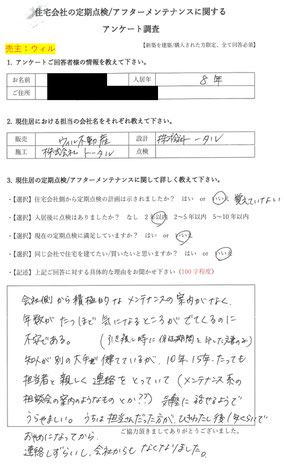 住宅会社の定期点検/アフターメンテナンスに関する
アンケート調査
売主：ウィル
【新築を建築/購入された方限定、全て回答必須】
1. アンケートご回答者様の情報を教えて下さい。
お名前 入居年 8年
ご住所
2. 現住居における担当の会社名をそれぞれ教えて下さい。
販売 ウィル不動産 設計 株式会社トータル
施工 株式会社トータル 点検
3. 現住居の定期点検/アフターメンテナンスに関して詳しく教えて下さい。
・【選択】住宅会社側から定期点検の計画は示されましたか？ はい or いいえ 覚えていない
・【選択】入居後に点検はありましたか？ なし 2年以内 2～5年以内 5～10年以内
・【選択】現在の定期点検に満足していますか？ はい or いいえ
・【選択】同じ会社で住宅を建てたい/買いたいと思いますか？ はい or いいえ
・【記述】上記ご回答に対する具体的な理由をお聞かせ下さい（100字程度）
会社側から積極的なメンテナンスの案内がなく、
年数がたつほど気になるところがでてくるのに
不安である。（引き渡し時に保証期間を示した
知人が別の大手で建てているが、10年、15年たっても
担当者と親しく連絡をとっていて（メンテナンス系の
相談会の案内のようなものとか??）
うらやましい。うちは担当さんだった方が、
おやめになってから
連絡しずらいし、会社からもなくなりました。
ご協力頂きましてありがとうございました。